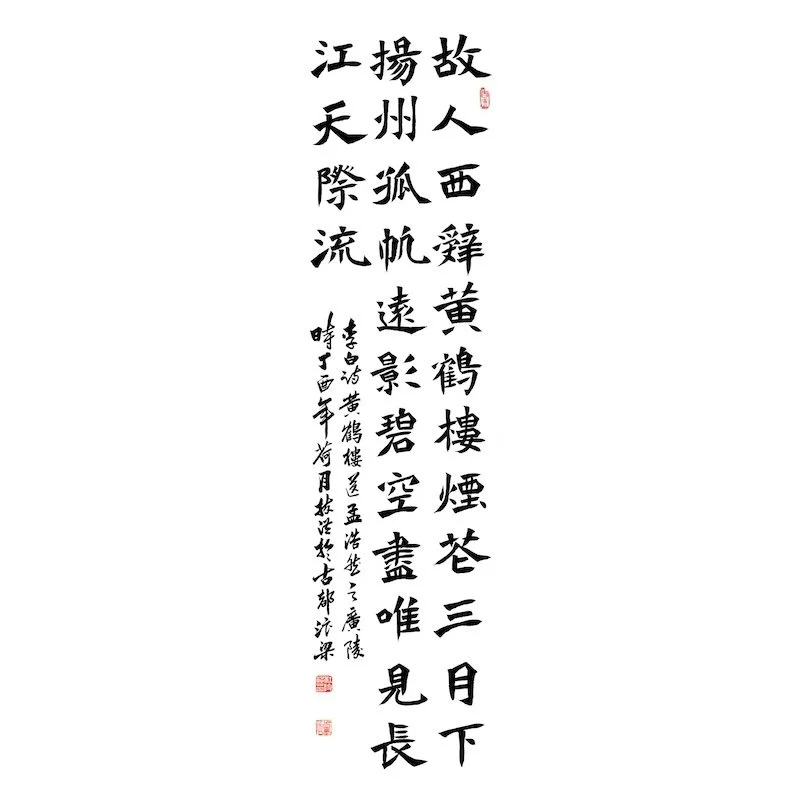 故人西辭黃鶴樓煙花三月下
揚州孤帆遠影碧空盡唯見長
江天際流
李白詩黃鶴樓送孟浩然之廣陵
時丁酉年荷月林浩於古都汴梁